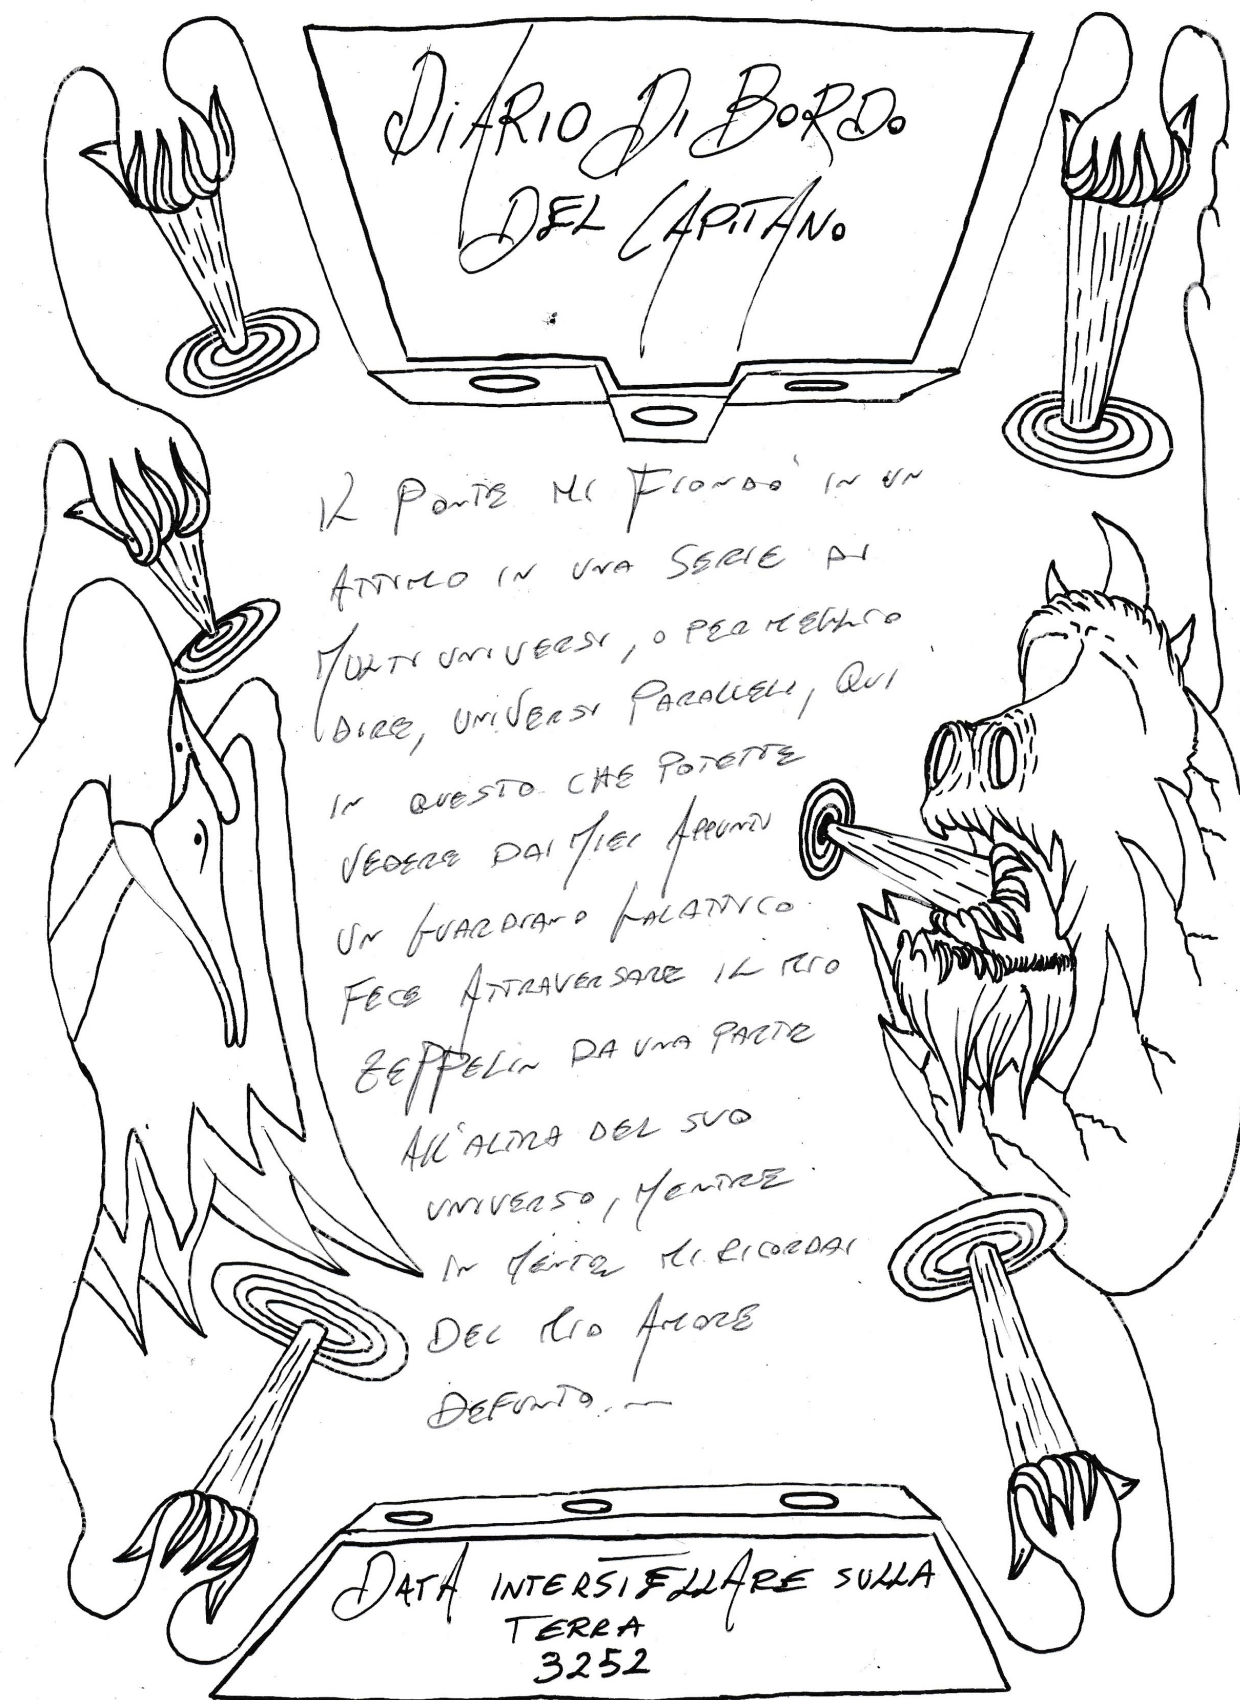 DiARIO Di BORDO
DEL CAPITANO
IL PONTE MI FIONDÒ IN UN
ATTIMO IN UNA SERIE DI
MULTI UNIVERSI, O PER MEGLIO
DIRE, UNIVERSI PARALLELI, QUI
IN QUESTO CHE POTETE
VEDERE DAI MIEI APPUNTI
UN GUARDIANO GALATTICO
FECE ATTRAVERSARE IL MIO
ZEPPELIN DA UNA PARTE
ALL'ALTRA DEL SUO
UNIVERSO, MENTRE
IN MENTE MI RICORDAI
DEL MIO AMORE
DEFUNTO.—
DATA INTERSTELLARE SULLA
TERRA
3252